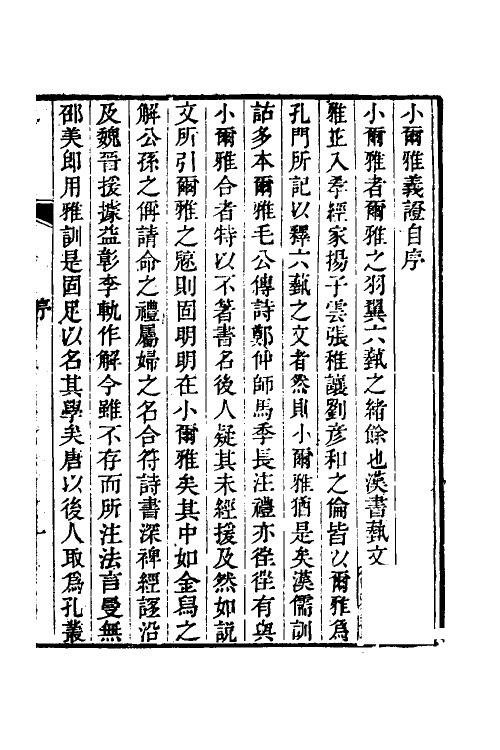 小爾雅義證自序
小爾雅者爾雅之羽翼六蓺之緒餘也漢書蓺文
雅並入孝經家揚子雲張稚讓劉彥和之倫皆以爾雅爲
孔門所記以釋六蓺之文者然則小爾雅猶是矣漢儒訓
詁多本爾雅毛公傳詩鄭仲師馬季長注禮亦徃徃有與
小爾雅合者特以不著書名後人疑其未經援及然如說
文所引爾雅之𠅤則固明明在小爾雅矣其中如金舄之
解公孫之偁請命之禮屬婦之名合符詩書深裨經誼沿
及魏晉援據益彰李軌作解今雖不存而所注法言曼無
邵美卽用雅訓是固足以名其學矣唐以後人取爲孔叢
序